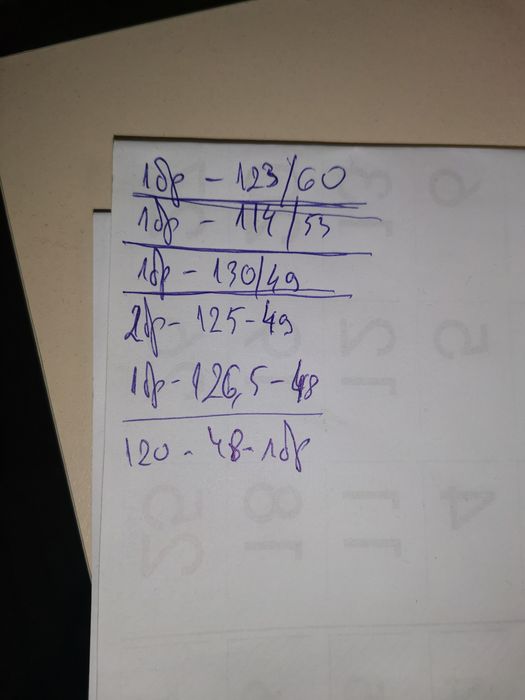 1бр - 123/60
1бр - 114/53
1бр - 130/49
2бр - 125-49
1бр - 126,5-48
120 - 48-1бр